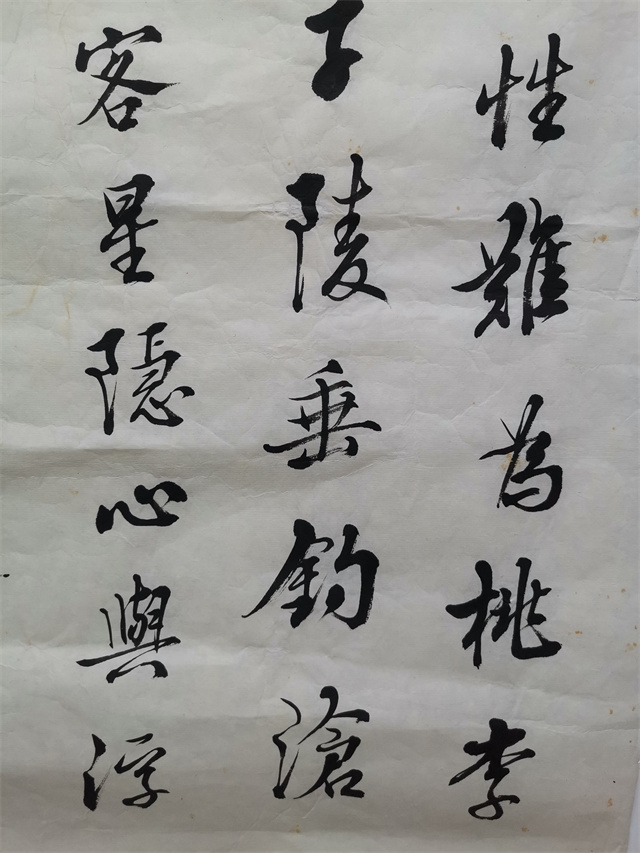 性難為桃李
子陵垂釣滄
客星隱心與浮